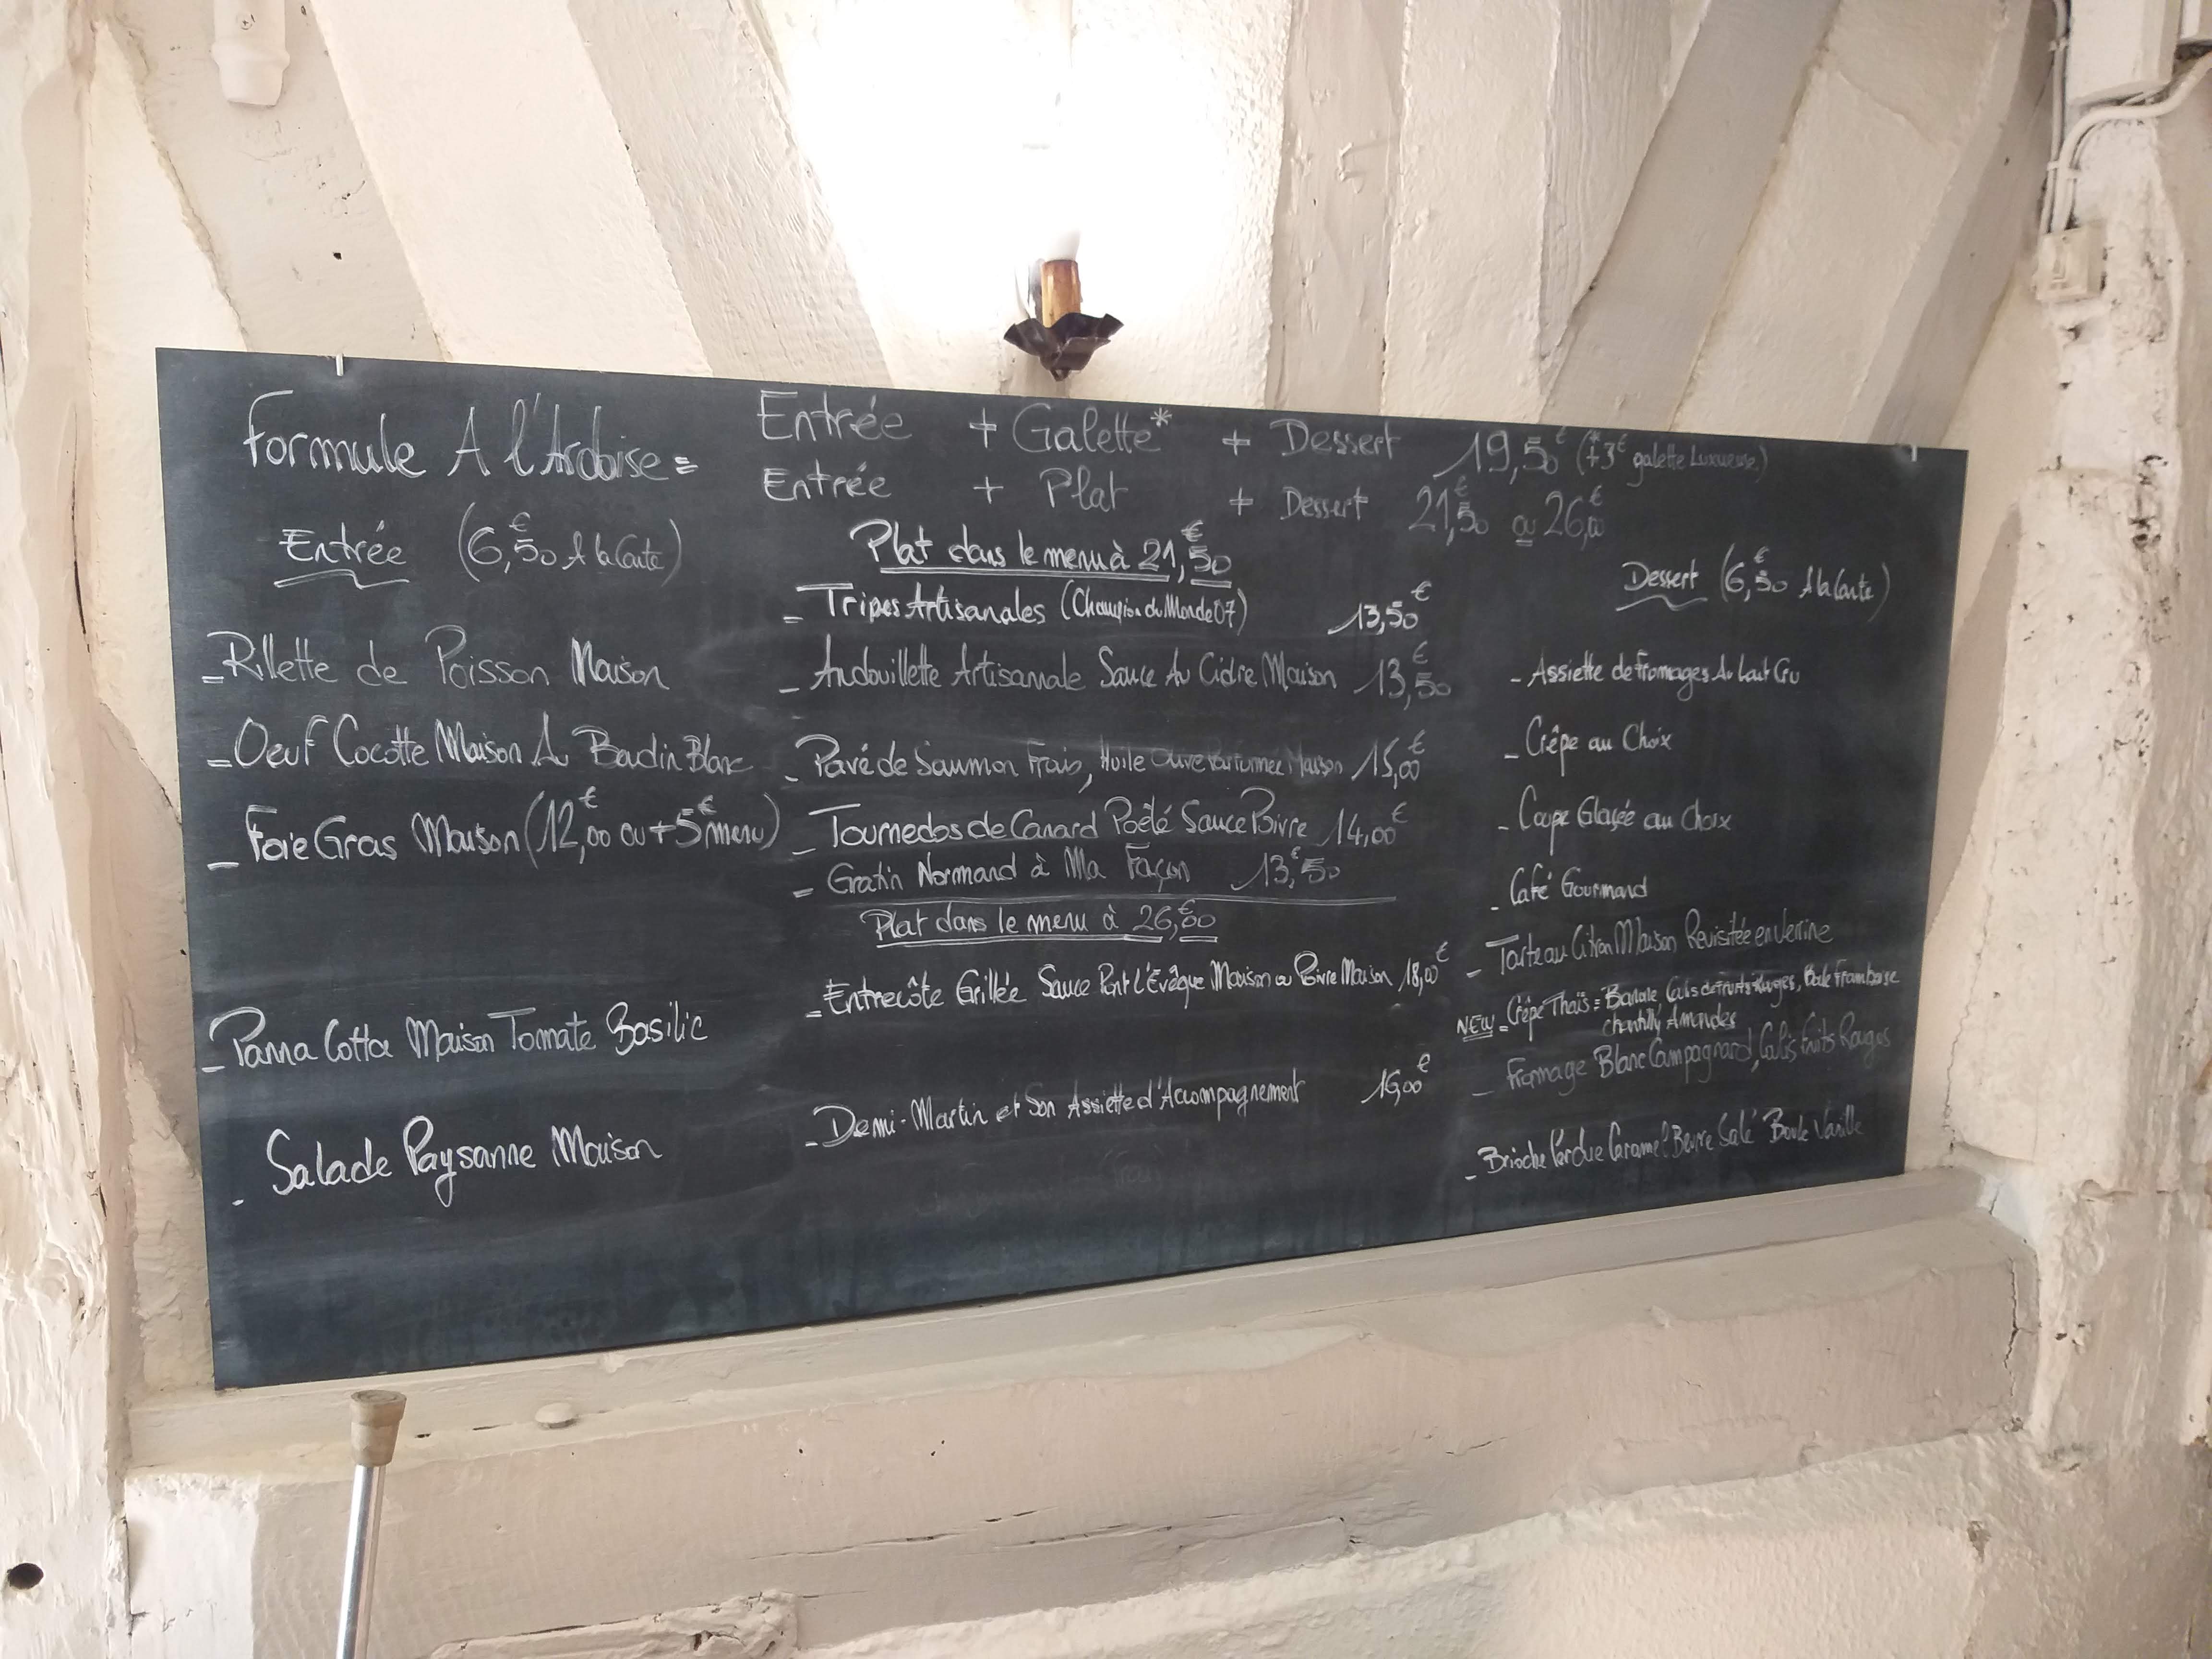 Formule A l'Ardoise =
Entrée + Galette* + Dessert 19,50€ (*+3€ galette Luxueuse)
Entrée + Plat + Dessert 21,50€ ou 26,00€
Entrée (6,50€ A la Carte)
- Rillette de Poisson Maison
- Oeuf Cocotte Maison Au Boudin Blanc
- Foie Gras Maison (12,00€ ou +5€ menu)
- Panna Cotta Maison Tomate Basilic
- Salade Paysanne Maison
Plat dans le menu à 21,50€
- Tripes Artisanales (Champion du Monde 07) 13,50€
- Andouillette Artisanale Sauce Au Cidre Maison 13,50€
- Pavé de Saumon Frais, Huile Olive Parfumée Maison 15,00€
- Tournedos de Canard Poêlé Sauce Poivre 14,00€
- Gratin Normand à Ma Façon 13,50€
Plat dans le menu à 26,00€
- Entrecôte Grillée Sauce Pont l'Evêque Maison ou Poivre Maison 18,00€
- Demi-Martin et Son Assiette d'Accompagnement €
Dessert (6,50€ A la Carte)
- Assiette de Fromages Au Lait Cru
- Crêpe au Choix
- Coupe Glacée au Choix
- Café Gourmand
- Tarte au Citron Maison Revisitée en Verrine
NEW - Crêpe Thaïs = Banane, Coulis de Fruits Rouges, Boule Framboise
chantilly Amandes
- Fromage Blanc Campagnard, Coulis fruits Rouges
- Brioche Perdue Caramel Beurre Salé Boule Vanille